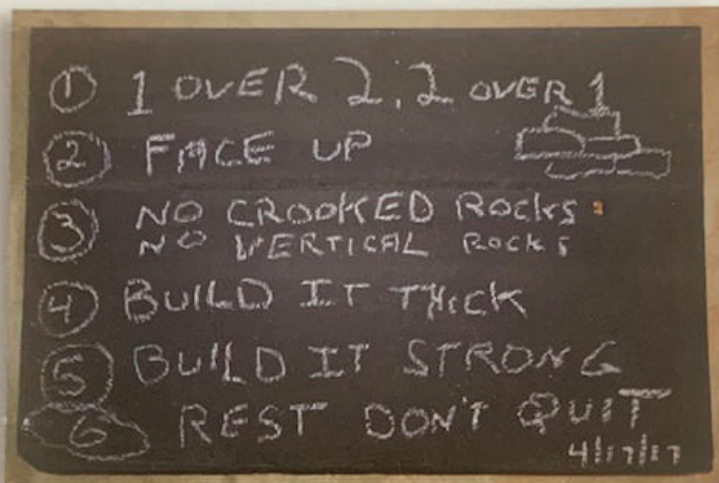 ① 1 OVER 2, 2 OVER 1
② FACE UP
③ NO CROOKED ROCKS
NO VERTICAL ROCKS
④ BUILD IT THICK
⑤ BUILD IT STRONG
⑥ REST DON'T QUIT
4/17/17